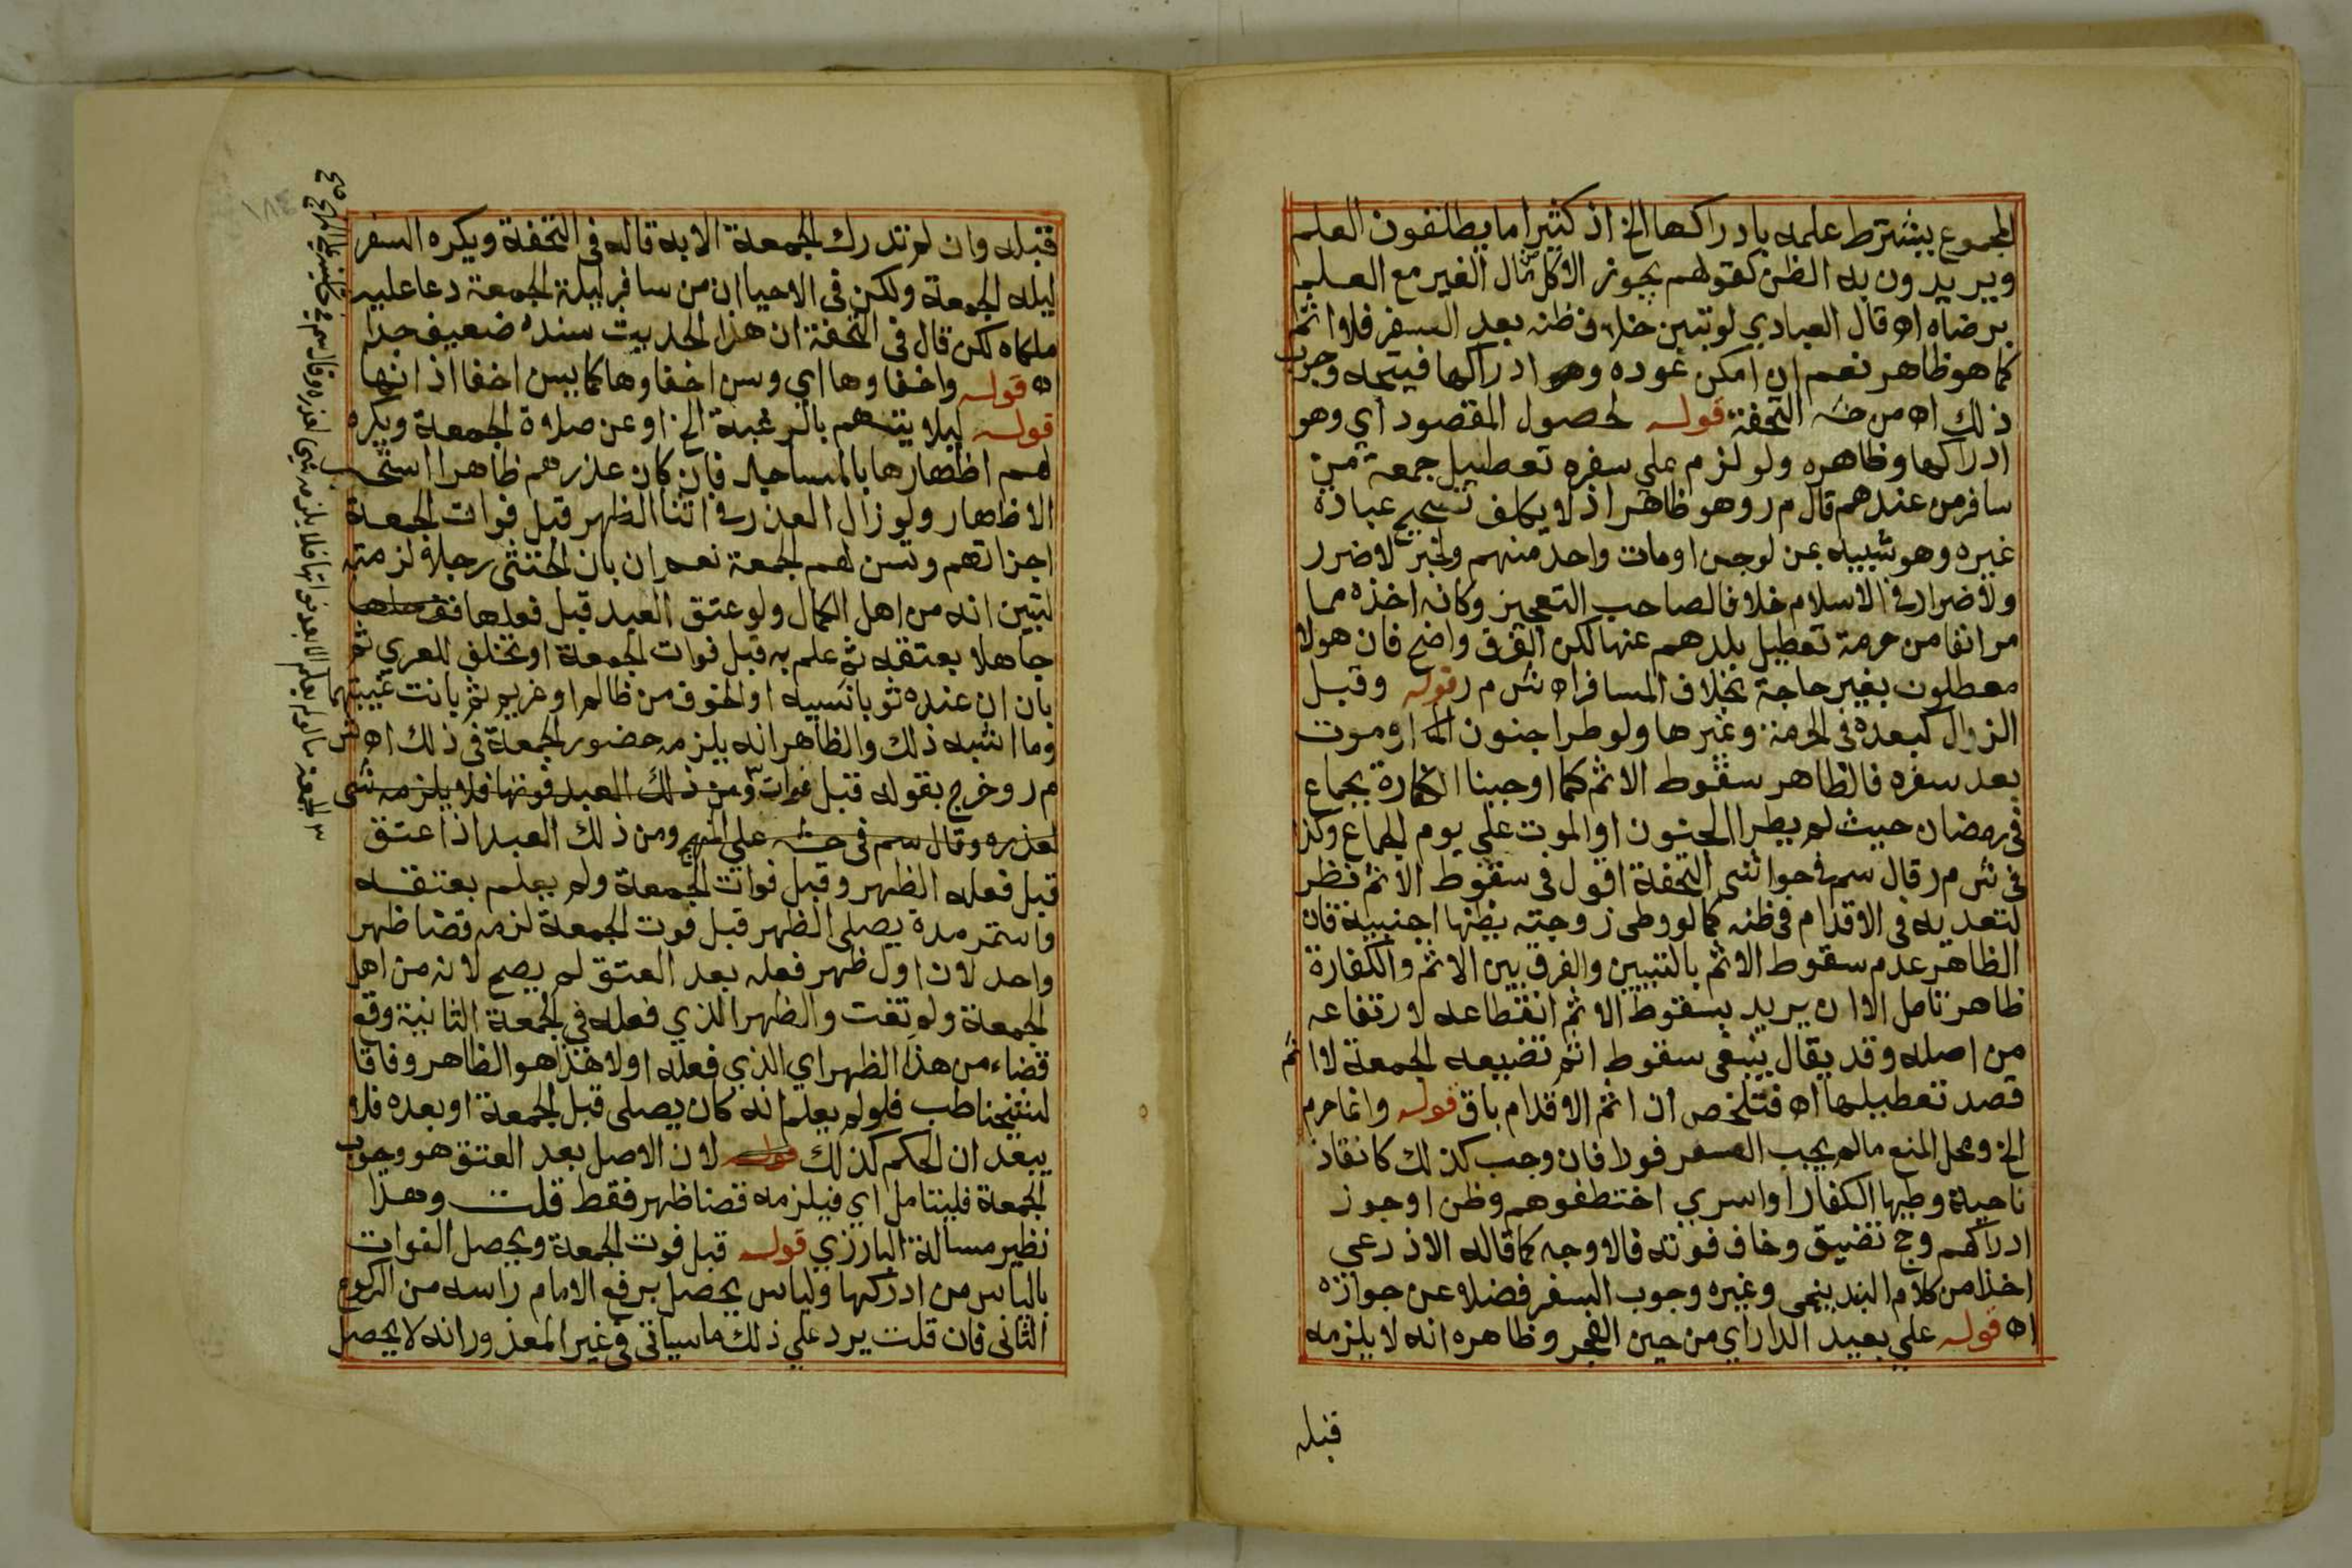 المجموع يشترط علمه بادراكها الخ اذ كثيرا ما يطلقون العلم
ويريدون به الظن كقولهم يجوز الاكل من مال الغير مع العلم
برضاه اه قال العبادي لو تبين خلاف ظنه بعد السفر فلا اثم
كما هو ظاهر نعم ان امكن عوده وادراكها فيتجه وجوب
ذلك اه من حشـ التحفة قوله لحصول المقصود اي وهو
ادراكها وظاهره ولو لزم علي سفره تعطيل جمعة من
سافر من عندهم قال م ر وهو ظاهر اذ لا يكلف تصحيح عبادة
غيره وهو شبيه بمن لو جن او مات واحد منهم ولخبر لا ضرر
ولا ضرار في الاسلام خلافا لصاحب التعجيز وكانه اخذه مما
مر انفا من حرمة تعطيل بلدهم عنها لكن الفرق واضح فان هولا
معطلون بغير حاجة بخلاف المسافر اه ش م ر قوله وقبل
الزوال كبعده في الحرمة وغيرها ولو طرا جنون او موت
بعد سفره فالظاهر سقوط الاثم كما اوجبنا الكفارة بجماع
في رمضان حيث لم يطرا الجنون او الموت علي يوم الجماع وكذا
في ش م ر قال سم في حواشي التحفة اقول في سقوط الاثم نظر
لتعديه في الاقدام في ظنه كما لو وطي زوجته يظنها اجنبية فان
الظاهر عدم سقوط الاثم بالتبيين والفرق بين الاثم والكفارة
ظاهر تامل الا ان يريد بسقوط الاثم انقطاعه لا رتفاعه
من اصله وقد يقال ينبغي سقوط اثم تضييعه الجمعة لا اثم
قصد تعطيلها اه فتلخص ان اثم الاقدام باق قوله وانما حرم
الخ ومحل المنع ما لم يجب السفر فورا فان وجب كذلك كانقاذ
ناحية وطيها الكفار او اسري اختطفوهم وظن او جوز
ادراكهم وحج تضيق وخاف فوته فالاوجه كما قاله الاذرعي
اخذا من كلام البندينجي وغيره وجوب السفر فضلا عن جوازه
اه قوله علي بعيد الدار اي من حين الفجر وظاهره انه لا يلزمه
قبله
قبله وان لم تدرك الجمعة الا به قاله في التحفة ويكره السفر
ليله الجمعة ولكن في الاحيا ان من سافر ليلة الجمعة دعا عليه
ملكاه لكن قال في التحفة ان هذا الحديث سنده ضعيف جدا
اه قوله واخفاوها اي وسن اخفاوها كما يسن اخفا اذانها
قوله ليلا يتهم بالرغبة الخ او عن صلاة الجمعة ويكره
لهم اظهارها بالمساجد فان كان عذرهم ظاهرا استحب
الاظهار ولو زال العذر في اثنا الظهر قبل فوات الجمعة
اجزاتهم وتسن لهم الجمعة نعم ان بان الخنثي رجلا لزمته
لتبين انه من اهل الكمال ولو عتق العبد قبل فعلها ففعلها
جاهلا بعتقه ثم علم به قبل فوات الجمعة او تخلف للعري ثم
بان ان عنده ثوبا نسيه او الخوف من ظالم او غريم ثم بانت غيبتهما
وما اشبه ذلك والظاهر انه يلزمه حضور الجمعة في ذلك اه ش
م ر وخرج بقوله قبل فوات ومن ذلك العبد فوتها فلا يلزمه شي
لعذره وقال سم في حشـ علي المنهج ومن ذلك العبد اذا عتق
قبل فعله الظهر وقبل فوات الجمعة ولم يعلم بعتقه
واستمر مدة يصلي الظهر قبل فوت الجمعة لزمه قضا ظهر
واحد لان اول ظهر فعله بعد العتق لم يصح لانه من اهل
الجمعة ولم تفت والظهر الذي فعله في الجمعة الثانية وقع
قضاء من هذا الظهر اي الذي فعله اولا هذا هو الظاهر وفاقا
لشيخنا طب فلو لم يعلم انه كان يصلي قبل الجمعة او بعده فلا
يبعد ان الحكم كذلك لان الاصل بعد العتق هو وجوب
الجمعة فليتامل اي فيلزمه قضا ظهر فقط قلت وهذا
نظير مسالة البارزي قوله قبل فوت الجمعة ويحصل الفوات
بالياس من ادراكها والياس يحصل برفع الامام راسه من الركوع
الثاني فان قلت يرد علي ذلك ما سياتي في غير المعذور انه لا يحصل